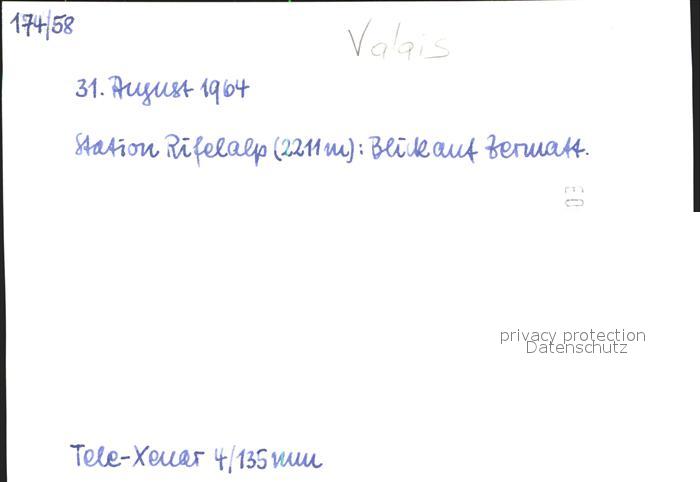 174/58
Valais
31. August 1964
Station Rifelalp (2211m): Blick auf Zermatt.
privacy protection
Datenschutz
Tele-Xenar 4/135mm